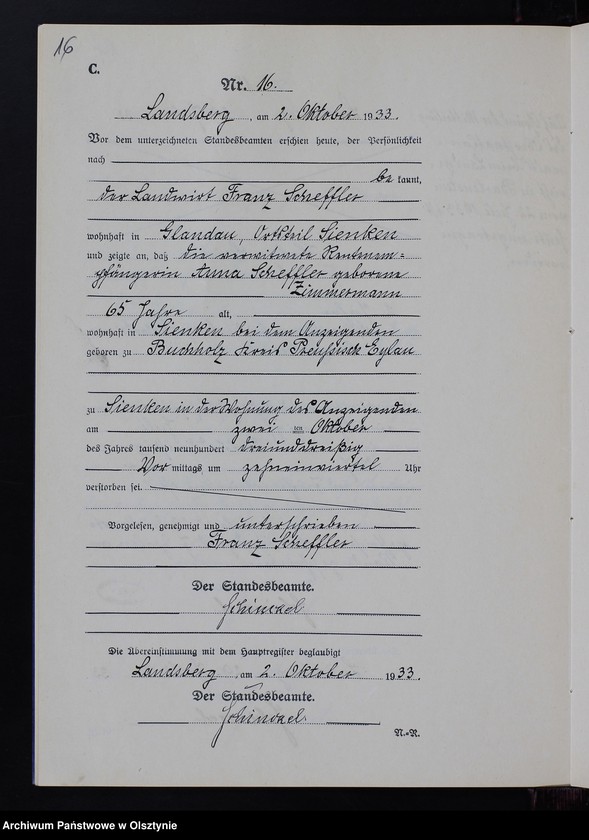 16
C.
Nr. 16.
Landsberg, am 2. Oktober 1933.
Vor dem unterzeichneten Standesbeamten erschien heute, der Persönlichkeit
nach
be kannt,
der Landwirt Franz Scheffler
wohnhaft in Glandau, Ortsteil Sienken
und zeigte an, daß die verwitwete Rentenem=
pfängerin Anna Scheffler geborene
Zimmermann
65 Jahre alt,
wohnhaft in Sienken bei dem Anzeigenden
geboren zu Buchholz Kreis Preußisch Eylau
zu Sienken in der Wohnung des Anzeigenden
am zwei ten Oktober
des Jahres tausend neunhundert dreiunddreißig
Vor mittags um zehneinviertel Uhr
verstorben sei.
Vorgelesen, genehmigt und unterschrieben
Franz Scheffler
Der Standesbeamte.
Die Übereinstimmung mit dem Hauptregister beglaubigt
Landsberg, am 2. Oktober 1933.
Der Standesbeamte.
N.=R.
Archiwum Państwowe w Olsztynie